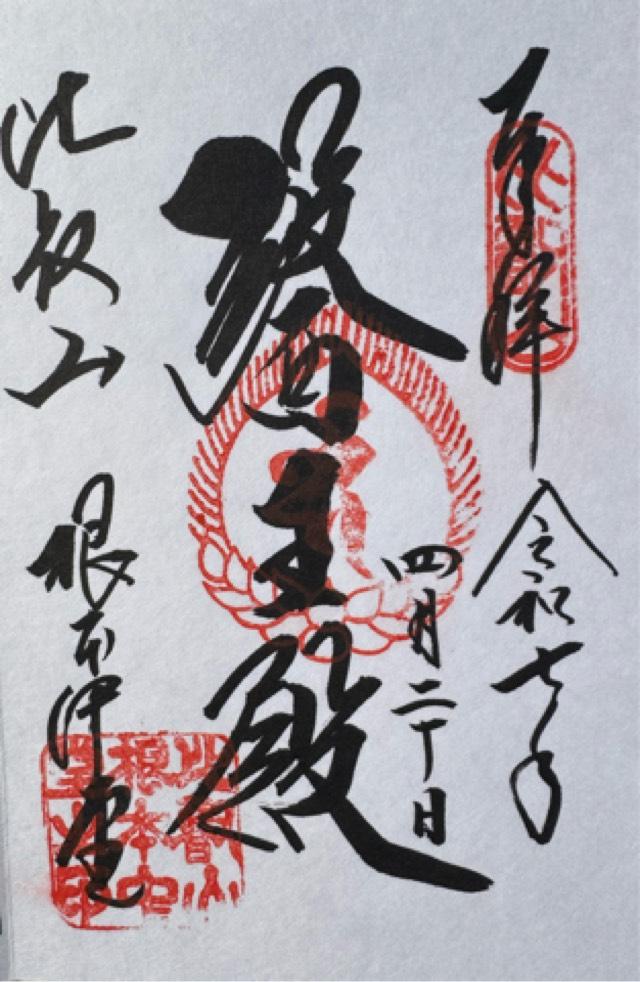 奉拝
令和七年
四月二十日
醫王殿
比叡山
根本中堂
比叡山
根本中
堂之印